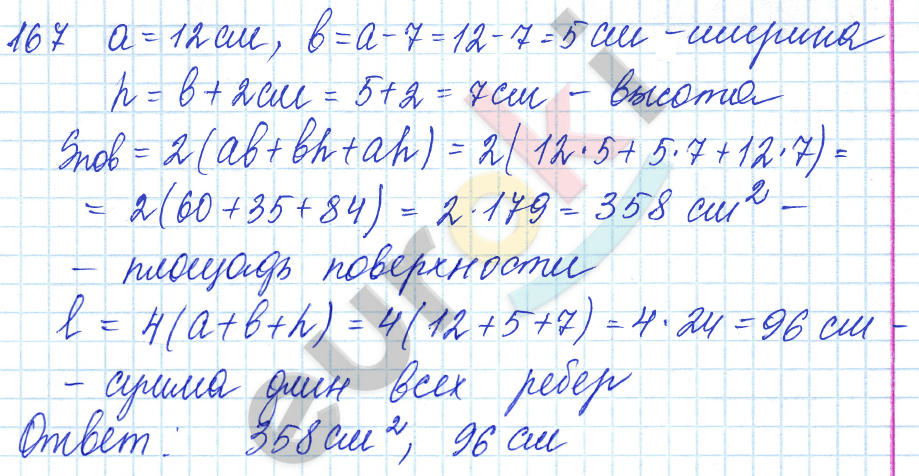 167 a = 12 см, b = a - 7 = 12 - 7 = 5 см - ширина
h = b + 2 см = 5 + 2 = 7 см - высота
Sпов = 2(ab + bh + ah) = 2(12·5 + 5·7 + 12·7) =
= 2(60 + 35 + 84) = 2·179 = 358 см² -
- площадь поверхности
l = 4(a + b + h) = 4(12 + 5 + 7) = 4·24 = 96 см -
- сумма длин всех ребер
Ответ: 358 см², 96 см
euroki